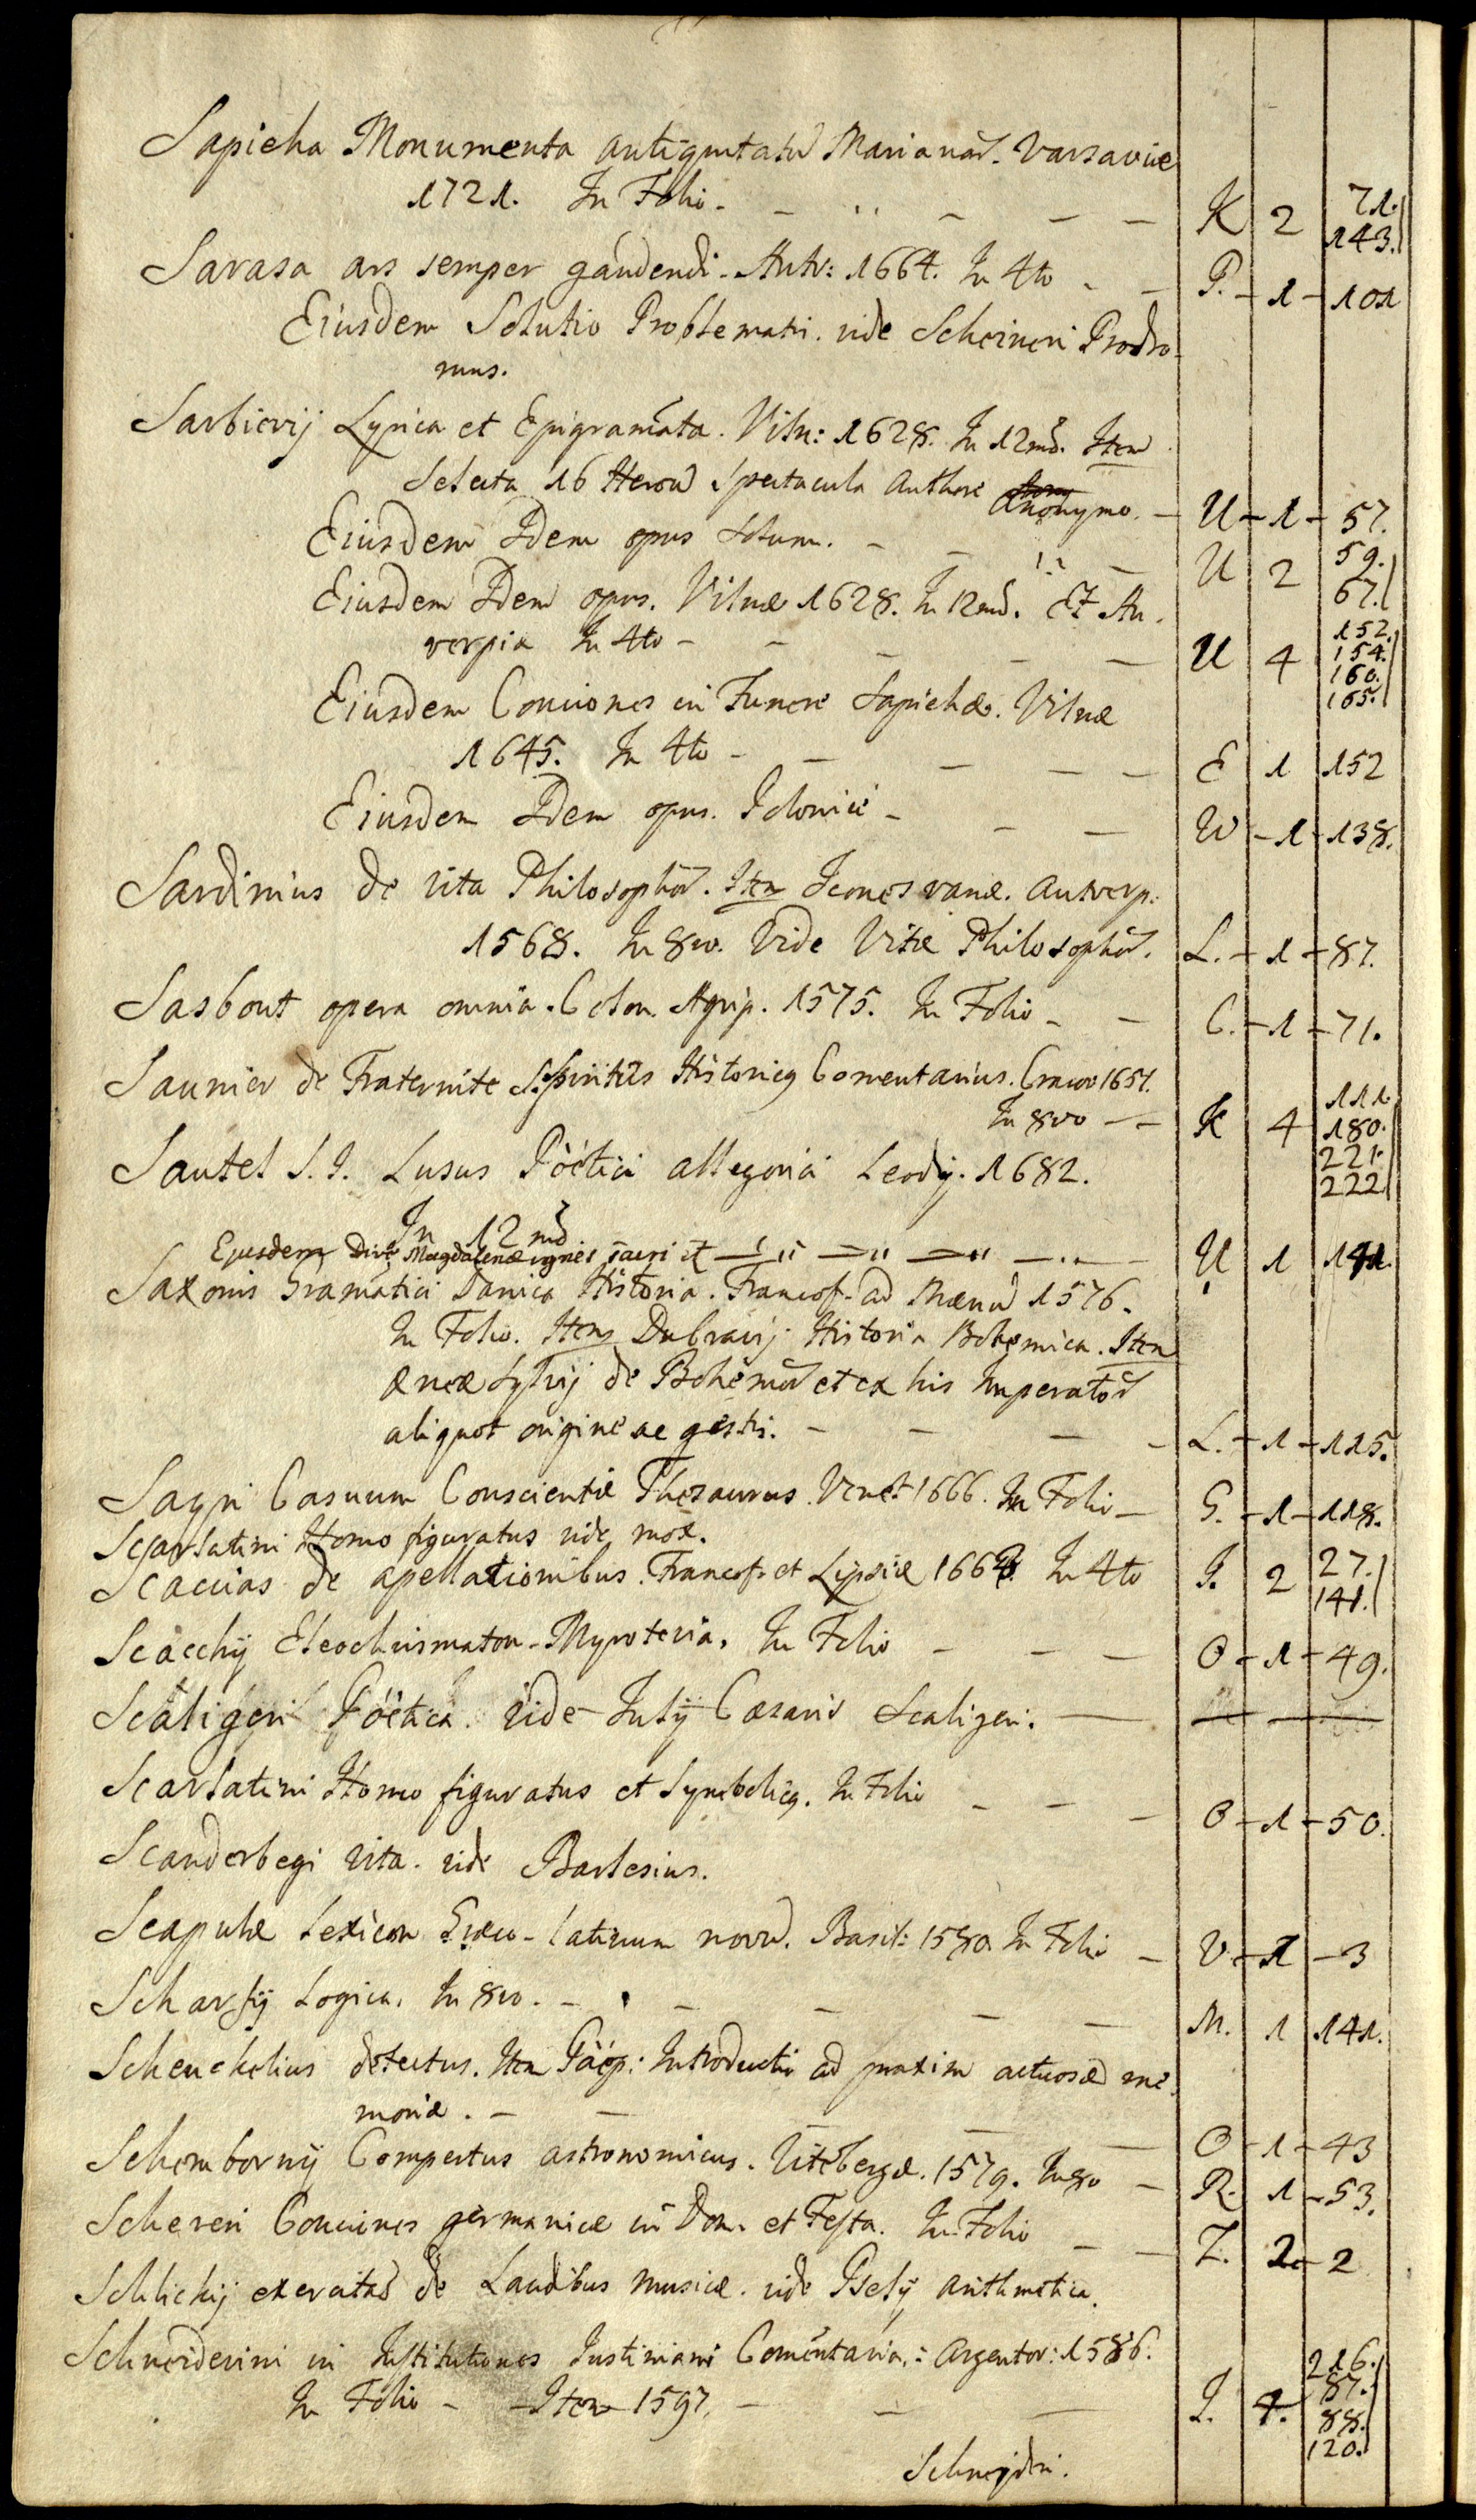 Sapieha Monumenta antiquitatū Marianaṙ. Varsaviæ
1721. In Folio - K 2 71. 143.
Sarasa ars semper gaudendi. Antv: 1664. In 4to - P. - 1 - 101
Eiusdem Solutio Problematis. vide Scheineri Prodro-
mus.
Sarbievij Lyrica et Epigramāta. Viln: 1628. In 12mō. Item
Selecta 16 Heroū Spectacula Authore Anonymo. - U - 1 - 57.
Eiusdem Idem opus totum. - U 2 59. 67.
Eiusdem Idem opus. Vilnæ 1628. In 12mō. Et An-
verpiæ In 4to - U 4 152. 154. 160. 165.
Eiusdem Conciones in Funere Sapiehæ. Vilnæ
1645. In 4to - E 1 152
Eiusdem Idem opus. Polonicè - W - 1 - 138.
Sardinius de vita Philosophoṙ. Item Icones variæ. Antverp:
1568. In 8vo. Vide Vitæ Philosophoṙ. L. - 1 - 87.
Sasbout opera omnia. Colon. Agrip. 1575. In Folio - C. - 1 - 71.
Saunier de Fraternite S. Spiritûs Historicq Comentarius. Cracov 1651.
In 8vo - K 4 111. 180. 221. 222.
Sautel S. J. Lusus Pöetici allegorici Leodij. 1682.
In 12mō
Ejusdem Divæ Magdalenæ ignes sacri et - U 1 141.
Saxonis Gramatici Danica Historia. Francof. ad Mænū 1576.
In Folio. Item Dubravij Historia Bohemica. Item
Æneæ Sylvij de Bohemoṙ et ex his Imperatoṙ
aliquot origine ac gestis. - L. - 1 - 115.
Sayri Casuum Conscientiæ Thesaurus. Venet 1666. In Folio - G. - 1 - 118.
Scarlatini Homo figuratus vide mox.
Scaccias de apellationibus. Francof. et Lipsiæ In 4to I. 2 27. 141.
Scacchij Eleochrismaton Myrotecia. In Folio - O - 1 - 49.
Scaligeri Pöetica. vide Julij Cæsaris Scaligeri.
Scarlatini Homo figuratus et Symbolicq. In Folio - O - 1 - 50.
Scanderbegi vita. vide Barlesius.
Scapulæ Lexicon Græco-latinum novū. Basil: 1580. In Folio - V. - 1 - 3
Scharfij Logica. In 8vo. - M. 1 141.
Schenckelius detectus. Item Päep: Introductio ad praxim actuosæ me-
moriæ. - O - 1 - 43
Schombornij Compertus astronomicus. Vitēbergæ. 1579. In 8vo - R. 1 - 53.
Schereri Conciones germanicæ in Dom. et Festa. In Folio - Z. 2 - 2
Schlickij exercitaō de Laudibus Musicæ. vide Pselij arithmetica.
Schneidevini in Institutiones Justiniani Comentaria: Argentor: 1586.
In Folio - Item 1597. - I. 4. 216. 87. 88. 120.
Schneyderi.